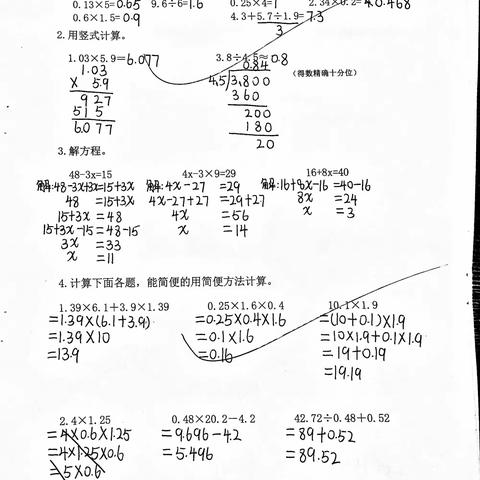 0.13×5=0.65 9.6÷6=1.6 0.25×4=1 2.34×0.2=
0.6×1.5=0.9 4.3+5.7÷1.9=7.3
3
2.用竖式计算。
1.03×5.9=6.077 3.8÷4.5≈0.8
(得数精确十分位)
1.03 0.84
× 5.9 4.5)3.800
927 360
515 200
6.077 180
20
3.解方程。
48-3x=15 4x-3×9=29 16+8x=40
解:48-3x+3x=15+3x 解:4x-27=29 解:16+8x-16=40-16
48=15+3x 4x-27+27=29+27 8x=24
15+3x=48 4x=56 x=3
15+3x-15=48-15 x=14
3x=33
x=11
4.计算下面各题，能简便的用简便方法计算。
1.39×6.1+3.9×1.39 0.25×1.6×0.4 10.1×1.9
=1.39×(6.1+3.9) =0.25×0.4×1.6 =(10+0.1)×1.9
=1.39×10 =0.1×1.6 =10×1.9+0.1×1.9
=13.9 =0.16 =19+0.19
=19.19
2.4×1.25 0.48×20.2-4.2 42.72÷0.48+0.52
=4×0.6×1.25 =9.696-4.2 =89+0.52
=4×1.25×0.6 =5.496 =89.52
=5×0.6